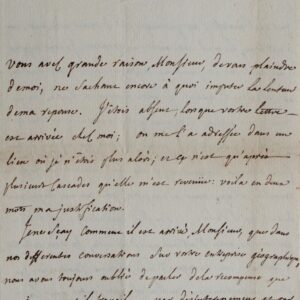 Vous avés grande raison, Monsieur, de vous plaindre
de moi, ne sachant encore à quoi imputer la lenteur
de ma reponse. J'étois absent, lorsque vostre lettre
est arrivée chés moi; on me l'a adressée dans un
lieu où je n'étois plus alors; et ce n'est qu'après
plusieurs cascades qu'elle m'est revenüe: voila en deux
mots ma justification.
Je ne sçay comme il est arrivé Monsieur, que dans
nos differentes conversations sur vostre entreprise géographique,
nous avons toujours oublié de parler de la recompense que